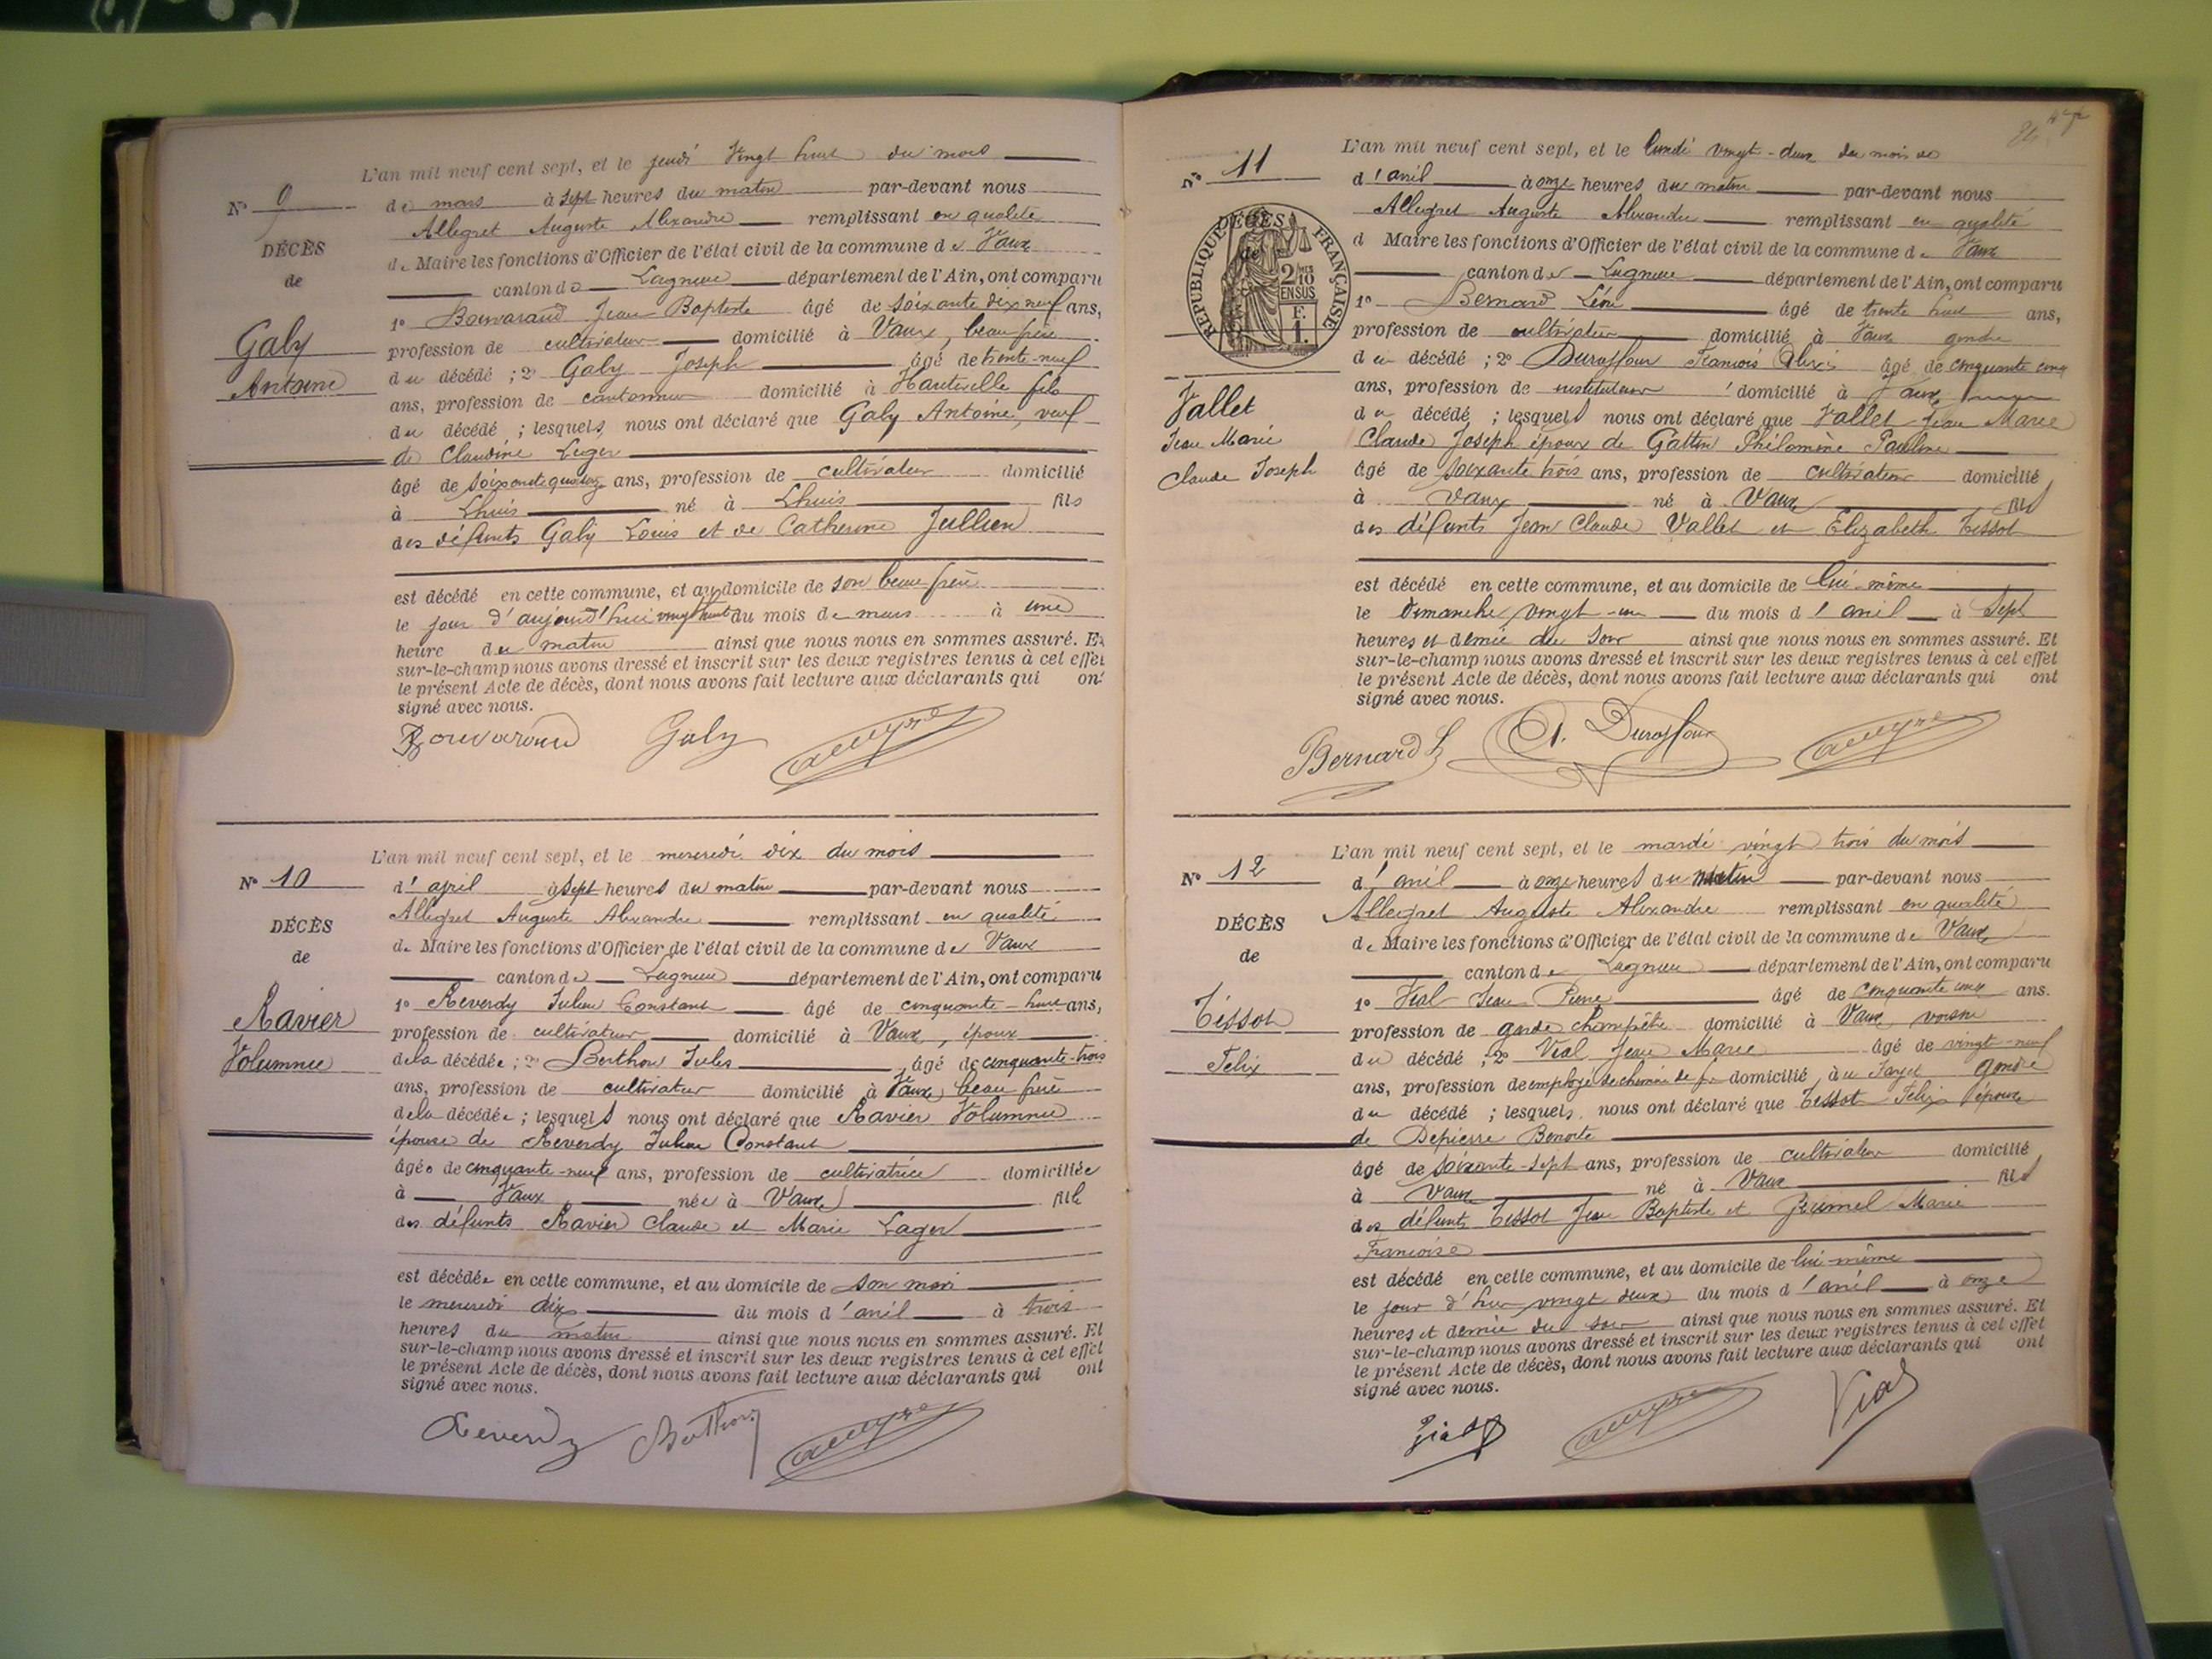 L'an mil neuf cent sept, et le jeudi vingt huit du mois
N° 9
de mars à sept heures du matin par-devant nous
Allegret Auguste Alexandre remplissant en qualité
DÉCÈS
de Maire les fonctions d'Officier de l'état civil de la commune de Vaux
de
canton de Lagnieu département de l'Ain, ont comparu
1° Bouvarand Jean Baptiste âgé de soixante dix neuf ans,
Galy
profession de cultivateur domicilié à Vaux, beau frère
Antoine
du décédé ; 2° Galy Joseph âgé de trente-neuf
ans, profession de cantonnier domicilié à Hauteville fils
du décédé ; lesquels nous ont déclaré que Galy Antoine, veuf
de Claudine Leger
âgé de soixante quatorze ans, profession de cultivateur domicilié
à Lhuis né à Lhuis fils
des défunts Galy Louis et de Catherine Jullien
est décédé en cette commune, et au domicile de son beau frère
le jour d'aujourd'hui vingt huit du mois de mars à une
heure du matin ainsi que nous nous en sommes assuré. Et
sur-le-champ nous avons dressé et inscrit sur les deux registres tenus à cet effet
le présent Acte de décès, dont nous avons fait lecture aux déclarants qui ont
signé avec nous.
Bouvarand Galy
L'an mil neuf cent sept, et le mercredi dix du mois
N° 10
d'april à sept heures du matin par-devant nous
Allegret Auguste Alexandre remplissant en qualité
DÉCÈS
de Maire les fonctions d'Officier de l'état civil de la commune de Vaux
de
canton de Lagnieu département de l'Ain, ont comparu
1° Reverdy Julien Constant âgé de cinquante-huit ans,
Ravier
profession de cultivateur domicilié à Vaux, époux
Volumnie
de la décédée ; 2° Berthon Jules âgé de cinquante-trois
ans, profession de cultivateur domicilié à Vaux, beau frère
de la décédée ; lesquels nous ont déclaré que Ravier Volumnie
épouse de Reverdy Julien Constant
âgée de cinquante-neuf ans, profession de cultivatrice domiciliée
à Vaux née à Vaux fille
des défunts Ravier Claude et Marie Lager
est décédée en cette commune, et au domicile de son mari
le mercredi dix du mois d'avril à trois
heures du matin ainsi que nous nous en sommes assuré. Et
sur-le-champ nous avons dressé et inscrit sur les deux registres tenus à cet effet
le présent Acte de décès, dont nous avons fait lecture aux déclarants qui ont
signé avec nous.
Reverdy Berthon
L'an mil neuf cent sept, et le lundi vingt-deux du mois de
N° 11
d'avril à onze heures du matin par-devant nous
Allegret Auguste Alexandre remplissant en qualité
DÉCÈS
de
RÉPUBLIQUE FRANÇAISE
2/10 EN SUS
F. 1.
d Maire les fonctions d'Officier de l'état civil de la commune de Vaux
canton de Lagnieu département de l'Ain, ont comparu
1° Bernard Léon âgé de trente huit ans,
profession de cultivateur domicilié à Vaux gendre
du décédé ; 2° Duraffour François Alexis âgé de cinquante cinq
ans, profession de instituteur domicilié à Vaux
Vallet
du décédé ; lesquels nous ont déclaré que Vallet Jean Marie
Jean Marie
Claude Joseph époux de Gattin Philomène Pauline
Claude Joseph
âgé de soixante trois ans, profession de cultivateur domicilié
à Vaux né à Vaux fils
des défunts Jean Claude Vallet et Elizabeth Tissot
est décédé en cette commune, et au domicile de lui-même
le dimanche vingt-un du mois d'avril à sept
heures et demie du soir ainsi que nous nous en sommes assuré. Et
sur-le-champ nous avons dressé et inscrit sur les deux registres tenus à cet effet
le présent Acte de décès, dont nous avons fait lecture aux déclarants qui ont
signé avec nous.
Bernard L A. Duraffour
L'an mil neuf cent sept, et le mardi vingt trois du mois
N° 12
d'avril à onze heures du matin par-devant nous
Allegret Auguste Alexandre remplissant en qualité
DÉCÈS
de Maire les fonctions d'Officier de l'état civil de la commune de Vaux
de
canton de Lagnieu département de l'Ain, ont comparu
1° Vial Jean Pierre âgé de cinquante cinq ans.
Tissot
profession de garde champêtre domicilié à Vaux, voisin
Félix
du décédé ; 2° Vial Jean Marie âgé de vingt-neuf
ans, profession de employé de chemin de fer domicilié au gendre
du décédé ; lesquels nous ont déclaré que Tissot Félix époux
de Depierre Benoite
âgé de soixante-sept ans, profession de cultivateur domicilié
à Vaux né à Vaux fils
des défunts Tissot Jean Baptiste et Marie
Françoise
est décédé en cette commune, et au domicile de lui-même
le jour d'hier vingt deux du mois d'avril à onze
heures et demie du soir ainsi que nous nous en sommes assuré. Et
sur-le-champ nous avons dressé et inscrit sur les deux registres tenus à cet effet
le présent Acte de décès, dont nous avons fait lecture aux déclarants qui ont
signé avec nous.
Vial Vial